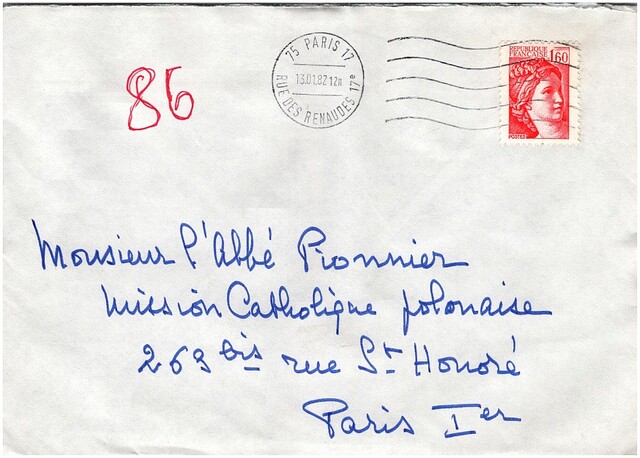 75 PARIS 17
13.01.82 12H
RUE DES RENAUDES 17e
REPUBLIQUE
FRANÇAISE 1,60
POSTES
86
Monsieur l'Abbé Pionnier
Mission Catholique polonaise
263 bis rue St Honoré
Paris Ier